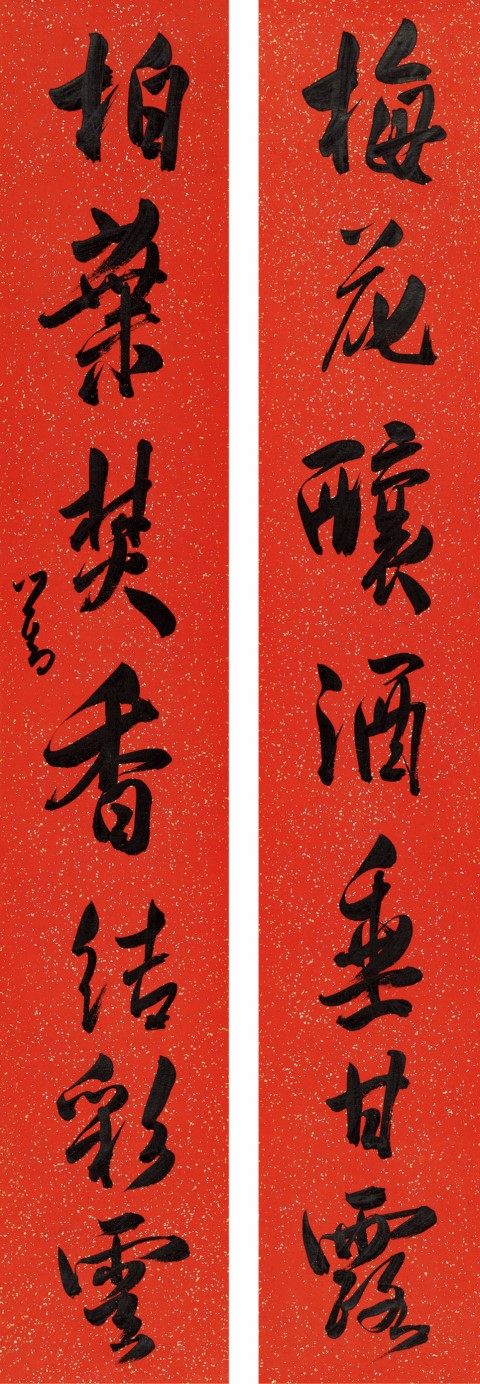 梅花釀酒垂甘露
柏葉焚香結彩雲